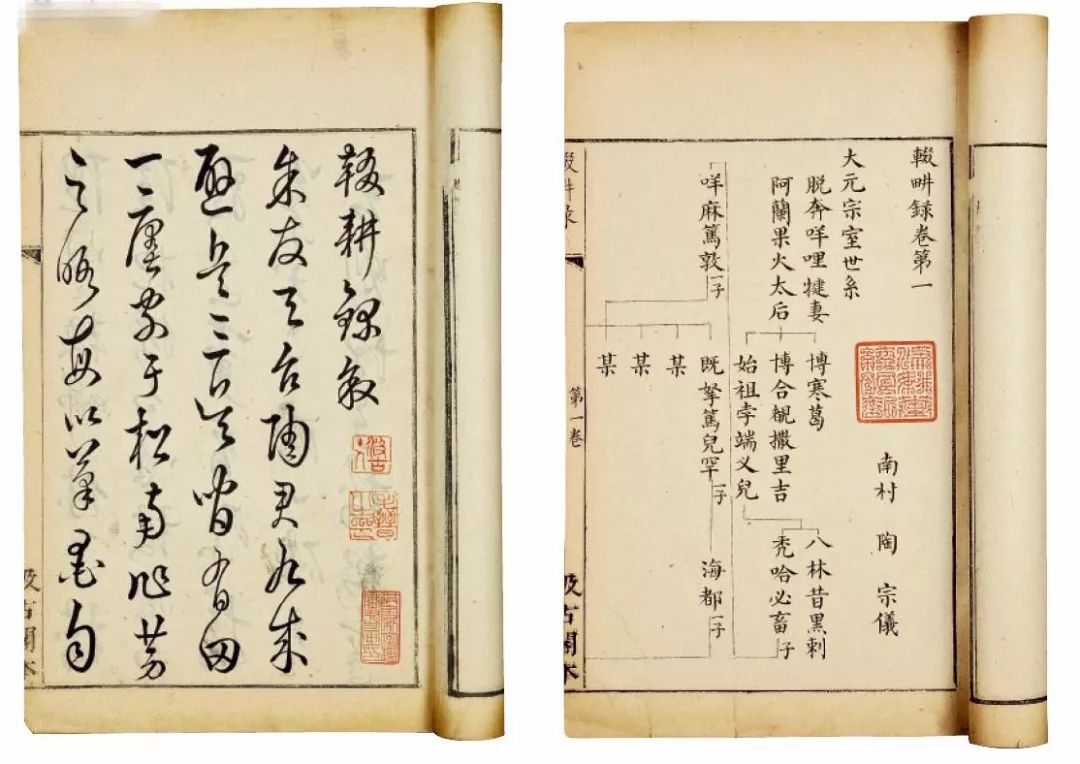 輟耕錄敘
余友天台陶君九成
避兵三吳間有田
一廛家于松南作勞
之暇每以筆墨自
輟畊錄卷第一
南村 陶 宗儀
大元宗室世系
脫奔咩哩犍妻
阿蘭果火太后
博寒葛
博合覩撒里吉
始祖孛端义兒
八林昔黑剌
禿哈必畜 子
咩麻篤敦 一子
既拏篤兒罕 一子
某
某
某
海都 一子
第一卷